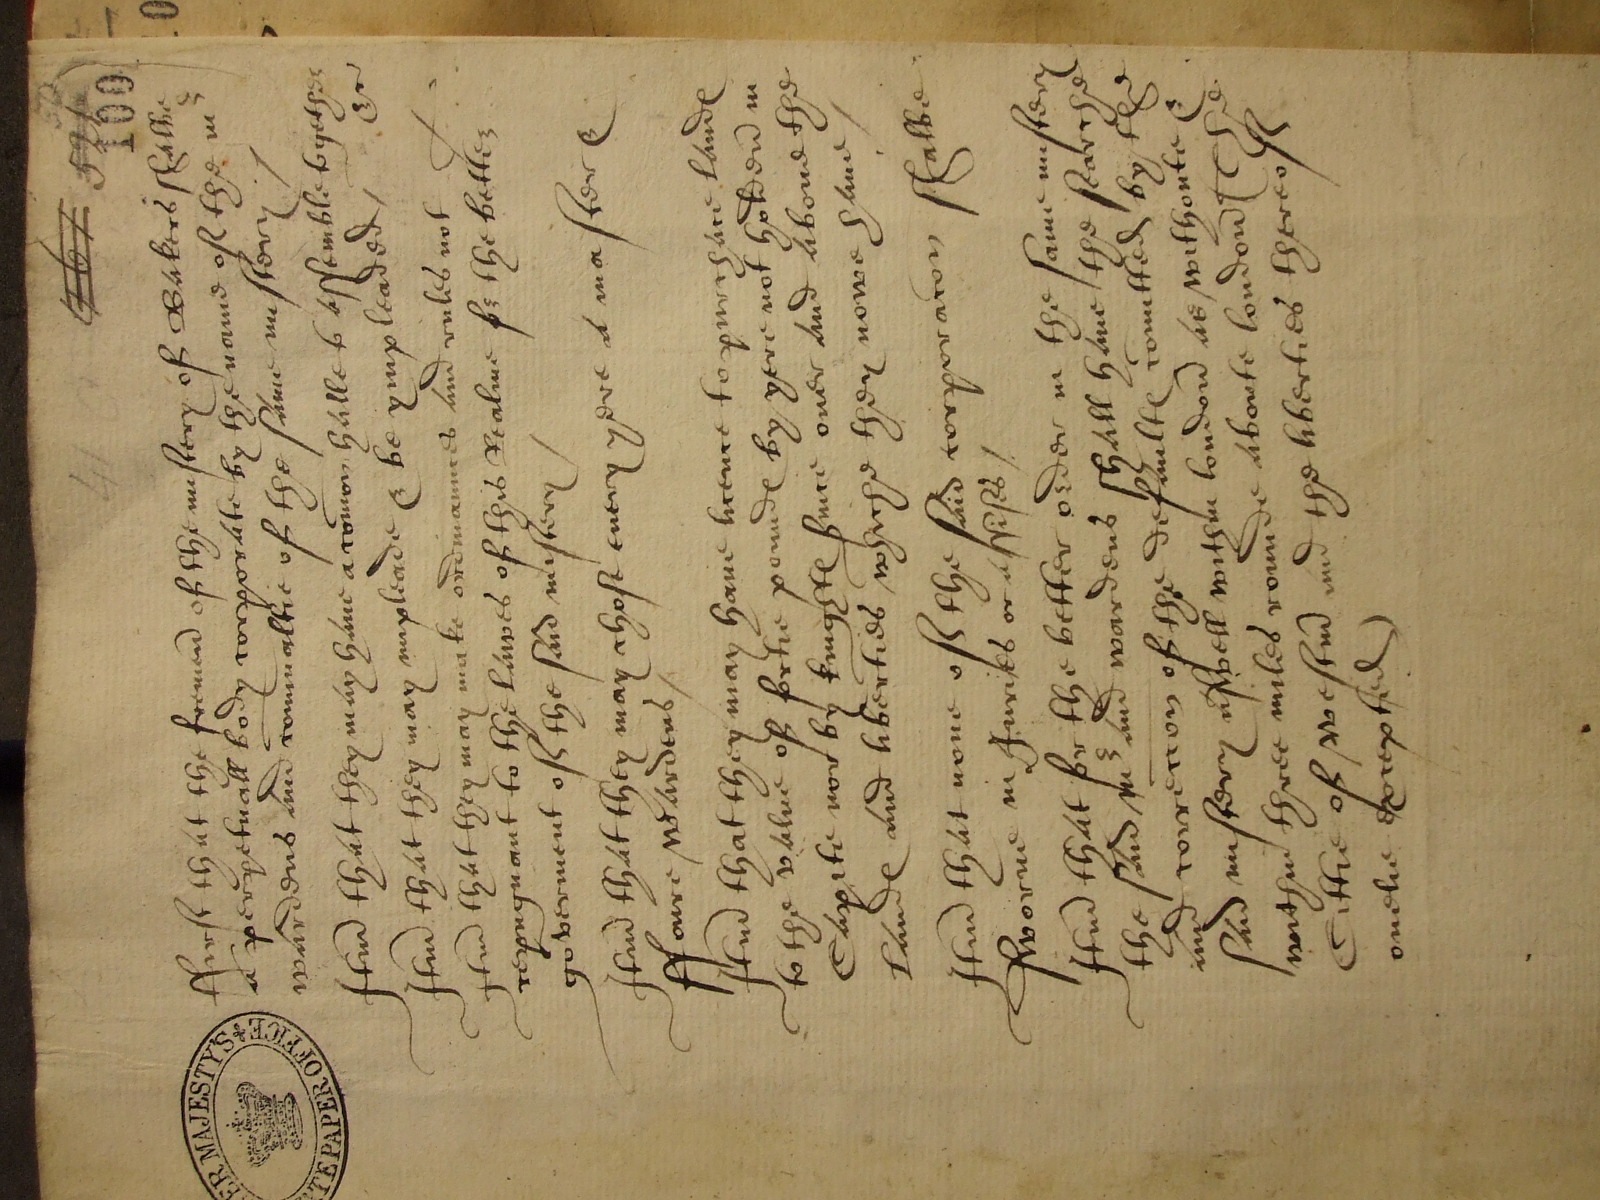 100
ffurst that the fremen of the mistery of Bakers shalbe
a perpetuall body corporate by the name of the mr
wardens and comunaltie of the same mistery /
Item that they may haue a comon halle to assemble together in
Item that they may impleade & be impleaded /
Item that they may make ordinaunces and rules not
repugnant to the Lawes of this Realme for the better
gouerment of the said mistery /
Item that they may chose euery yere a master &
ffoure wardens /
Item that they may haue licence to purchase Lande
to the value of fortie pounde by yere not holden in
Capite nor by knighte seruice ouer and aboue the
Lande and liberties whiche they nowe haue /
Item that none of the said corporacion shalbe
sworne in Juries or assises /
Item that for the better order in the same mistery
the said mr and wardens shall haue the searche
and correcion of the defaulte comitted by the
said mistery aswell within london as without &
within three miles rounde aboute london The
Cittie of westm and the liberties thereof
onelie excepted
HER MAJESTY'S STATE PAPER OFFICE